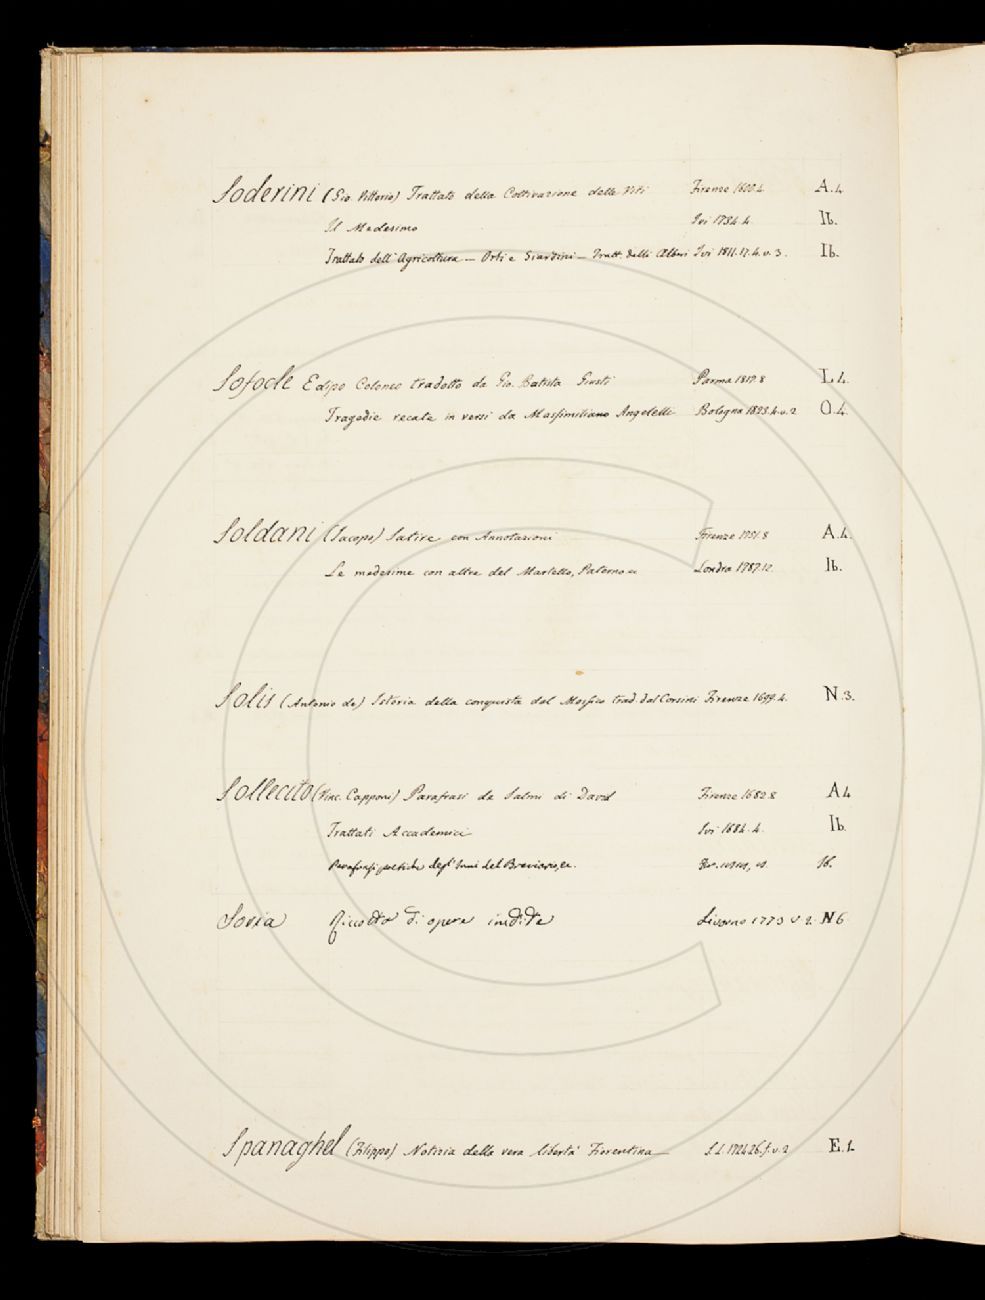 Soderini (Gio. Vittorio) Trattato della Coltivazione delle Viti Firenze 1600.4. A.4.
Il Medesimo Ivi 1734.4. Ib.
Trattato dell'Agricoltura — Orti e Giardini — Tratt. delli Alberi Ivi 1811.17.4.v.3. Ib.
Sofocle Edipo Coloneo tradotto da Gio. Batista Giusti Parma 1817.8 L.4.
Tragedie recate in versi da Massimiliano Angelelli Bologna 1823.4.v.2 O.4.
Soldani (Jacopo) Satire con Annotazioni Firenze 1751.8 A.4.
Le medesime con altre del Martello, Paterno ec Londra 1787.12. Ib.
Solis (Antonio de) Istoria della conquista del Messico trad. dal Corsini Firenze 1699.4. N.3.
Sollecito (Vinc. Capponi) Parafrasi de Salmi di David Firenze 1682.8 A4
Trattati Accademici Ivi 1684.4. Ib.
Parafrasi poetiche degl'Inni del Breviario, ec. Ib.
Soria Raccolta di opere inedite Livorno 1773 v.2. N6
Spanaghel (Filippo) Notizia della vera libertà Fiorentina S.L. 1724.26.f.v.2 E.1.